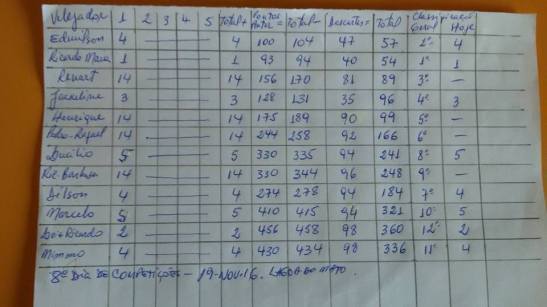 Velejador 1 2 3 4 5 Total+ Pontos Anter = Total- Descartes = Total Classificação Geral Hoje
Edmilson 4 4 100 104 47 57 1º 4
Ricardo Mara 1 1 93 94 40 54 1º 1
Renart 14 14 156 170 81 89 3º —
Jackeline 3 3 128 131 35 96 4º 3
Henrique 14 14 175 189 90 99 5º —
Pedro Raquel 14 14 244 258 92 166 6º —
Basílio 5 5 330 335 94 241 8º 5
Ric. Barbosa 14 14 330 344 96 248 9º —
Dilson 4 4 274 278 94 184 7º 4
Marcelo 5 5 410 415 94 321 10º 5
Ricardo 2 2 456 458 98 360 12º 2
Mimmo 4 4 430 434 98 336 11º 4
8º Dia de Competições - 19-Nov-16. Lagoa do